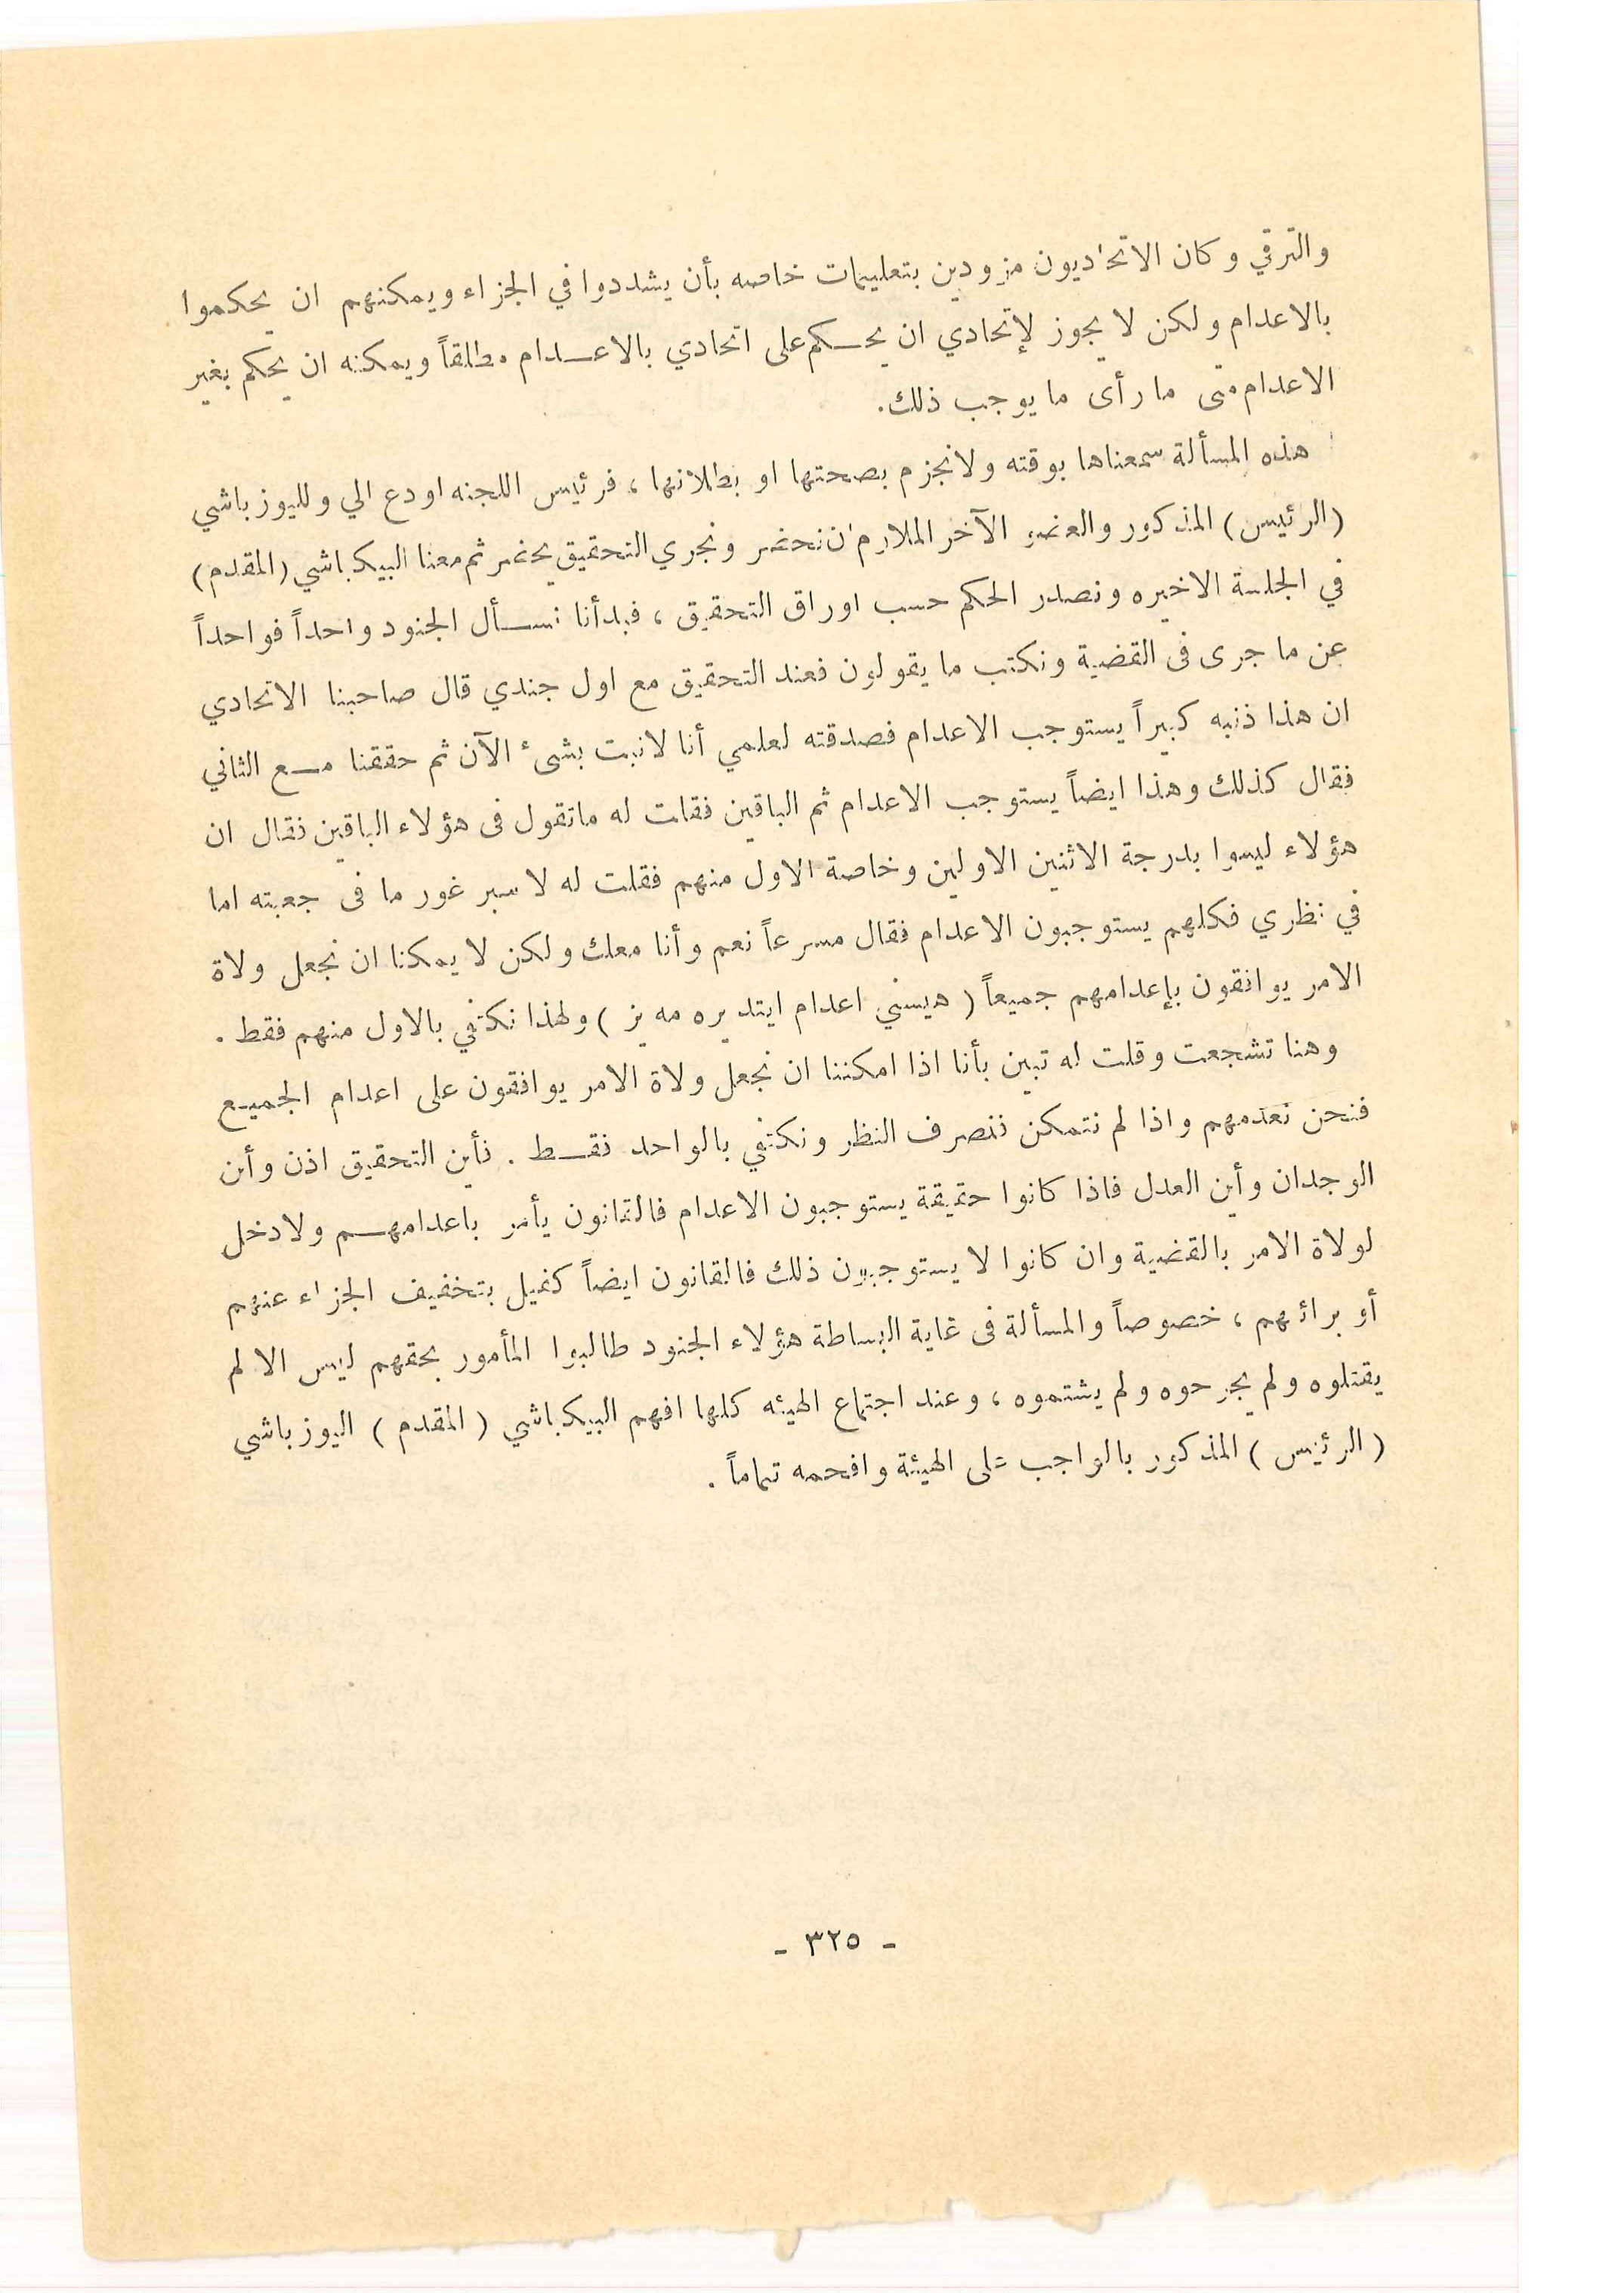 والترقي وكان الاتحاديون مزودين بتعليمات خاصه بأن يشددوا في الجزاء ويمكنهم ان يحكموا
بالاعدام ولكن لا يجوز لإتحادي ان يحكم على اتحادي بالاعدام مطلقاً ويمكنه ان يحكم بغير
الاعدام متى ما رأى ما يوجب ذلك.
هذه المسألة سمعناها بوقته ولانجزم بصحتها او بطلانها ، فرئيس اللجنه اودع الي ولليوزباشي
(الرئيس) المذكور والعضو الآخر الملازم ان نحضر ونجري التحقيق يحضر ثم معنا البيكباشي (المقدم)
في الجلسة الاخيره ونصدر الحكم حسب اوراق التحقيق ، فبدأنا نسأل الجنود واحداً فواحداً
عن ما جرى فى القضية ونكتب ما يقولون فعند التحقيق مع اول جندي قال صاحبنا الاتحادي
ان هذا ذنبه كبيراً يستوجب الاعدام فصدقته لعلمي أنا لانبت بشىء الآن ثم حققنا مع الثاني
فقال كذلك وهذا ايضاً يستوجب الاعدام ثم الباقين فقلت له ماتقول فى هؤلاء الباقين فقال ان
هؤلاء ليسوا بدرجة الاثنين الاولين وخاصة الاول منهم فقلت له لاسبر غور ما فى جعبته اما
في نظري فكلهم يستوجبون الاعدام فقال مسرعاً نعم وأنا معك ولكن لا يمكنا ان نجعل ولاة
الامر يوافقون بإعدامهم جميعاً ( هيسني اعدام ايتديره مه يز ) ولهذا نكتفي بالاول منهم فقط .
وهنا تشجعت وقلت له تبين بأنا اذا امكننا ان نجعل ولاة الامر يوافقون على اعدام الجميع
فنحن نعدمهم واذا لم نتمكن ننصرف النظر ونكتفي بالواحد فقط . فأين التحقيق اذن وأين
الوجدان وأين العدل فاذا كانوا حقيقة يستوجبون الاعدام فالقانون يأمر باعدامهم ولادخل
لولاة الامر بالقضية وان كانوا لا يستوجبون ذلك فالقانون ايضاً كفيل بتخفيف الجزاء عنهم
أو برائهم ، خصوصاً والمسألة فى غاية البساطة هؤلاء الجنود طالبوا المأمور بحقهم ليس الا لم
يقتلوه ولم يجرحوه ولم يشتموه ، وعند اجتماع الهيئه كلها افهم البيكباشي ( المقدم ) اليوزباشي
( الرئيس ) المذكور بالواجب على الهيئة وافحمه تماماً .
- ٣٢٥ -